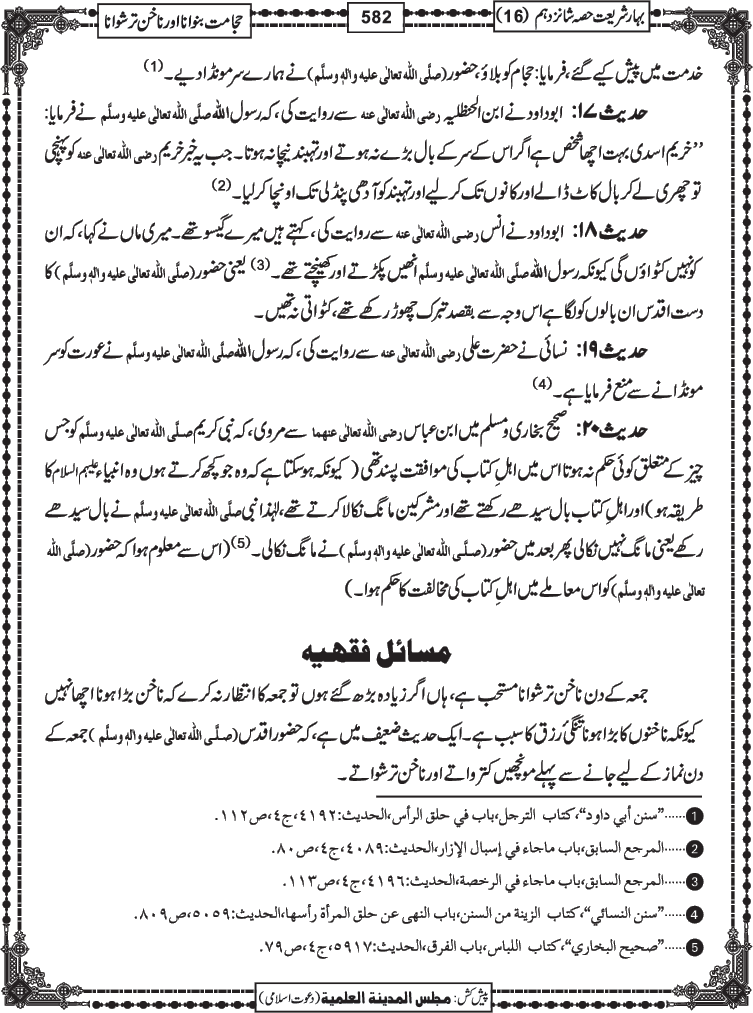 بہار شریعت حصہ شانزدہم (16)
582
حجامت بنوانا اور ناخن ترشوانا
خدمت میں پیش کیے گئے، فرمایا: حجام کو بلاؤ، حضور (صلَّی اللہ تعالٰی علیہ واٰلہٖ وسلَّم) نے ہمارے سر مونڈا دیے۔ (1)
حدیث ۱۷: ابو داود نے ابن الحنظلیہ رضی اللہ تعالٰی عنہ سے روایت کی، کہ رسول اللہ صلَّی اللہ تعالٰی علیہ وسلَّم نے فرمایا:
’’خریم اسدی بہت اچھا شخص ہے اگر اس کے سر کے بال بڑے نہ ہوتے اور تہبند نیچا نہ ہوتا۔ جب یہ خبر خریم رضی اللہ تعالٰی عنہ کو پہنچی
تو چھری لے کر بال کاٹ ڈالے اور کانوں تک کر لیے اور تہبند کو آدھی پنڈلی تک اونچا کر لیا۔ (2)
حدیث ۱۸: ابو داود نے انس رضی اللہ تعالٰی عنہ سے روایت کی، کہتے ہیں میرے گیسو تھے۔ میری ماں نے کہا، کہ ان
کو نہیں کٹواؤں گی کیونکہ رسول اللہ صلَّی اللہ تعالٰی علیہ وسلَّم انھیں پکڑتے اور کھینچتے تھے۔ (3) یعنی حضور (صلَّی اللہ تعالٰی علیہ واٰلہٖ وسلَّم) کا
دست اقدس ان بالوں کو لگا ہے اس وجہ سے بقصد تبرک چھوڑ رکھے تھے، کٹواتی نہ تھیں۔
حدیث ۱۹: نسائی نے حضرت علی رضی اللہ تعالٰی عنہ سے روایت کی، کہ رسول اللہ صلَّی اللہ تعالٰی علیہ وسلَّم نے عورت کو سر
مونڈانے سے منع فرمایا ہے۔ (4)
حدیث ۲۰: صحیح بخاری و مسلم میں ابن عباس رضی اللہ تعالٰی عنہما سے مروی، کہ نبی کریم صلَّی اللہ تعالٰی علیہ وسلَّم کو جس
چیز کے متعلق کوئی حکم نہ ہوتا اس میں اہلِ کتاب کی موافقت پسند تھی (کیونکہ ہو سکتا ہے کہ وہ جو کچھ کرتے ہوں وہ انبیاء علیہم السلام کا
طریقہ ہو) اور اہلِ کتاب بال سیدھے رکھتے تھے اور مشرکین مانگ نکالا کرتے تھے، لہٰذا نبی صلَّی اللہ تعالٰی علیہ وسلَّم نے بال سیدھے
رکھے یعنی مانگ نہیں نکالی پھر بعد میں حضور (صلَّی اللہ تعالٰی علیہ واٰلہٖ وسلَّم) نے مانگ نکالی۔ (5) (اس سے معلوم ہوا کہ حضور (صلَّی اللہ
تعالٰی علیہ واٰلہٖ وسلَّم) کو اس معاملے میں اہلِ کتاب کی مخالفت کا حکم ہوا۔)
مسائل فقہیہ
جمعہ کے دن ناخن ترشوانا مستحب ہے، ہاں اگر زیادہ بڑھ گئے ہوں تو جمعہ کا انتظار نہ کرے کہ ناخن بڑا ہونا اچھا نہیں
کیونکہ ناخنوں کا بڑا ہونا تنگیٔ رزق کا سبب ہے۔ ایک حدیث ضعیف میں ہے، کہ حضور اقدس (صلَّی اللہ تعالٰی علیہ واٰلہٖ وسلَّم) جمعہ کے
دن نماز کے لیے جانے سے پہلے مونچھیں کترواتے اور ناخن ترشواتے۔
1 ......”سنن أبي داود“، کتاب الترجل، باب في حلق الرأس، الحدیث: ٤١٩٢، ج٤، ص١١٢.
2 ......المرجع السابق، باب ماجاء في إسبال الإزار، الحدیث: ٤٠٨٩، ج٤، ص٨٠.
3 ......المرجع السابق، باب ماجاء في الرخصة، الحدیث: ٤١٩٦، ج٤، ص١١٣.
4 ......”سنن النسائي“، کتاب الزینة من السنن، باب النهی عن حلق المرأة رأسها، الحدیث: ٥٠٥٩، ص٨٠٩.
5 ......”صحیح البخاري“، کتاب اللباس، باب الفرق، الحدیث: ٥٩١٧، ج٤، ص٧٩.
پیش کش: مجلس المدینة العلمیة (دعوت اسلامی)